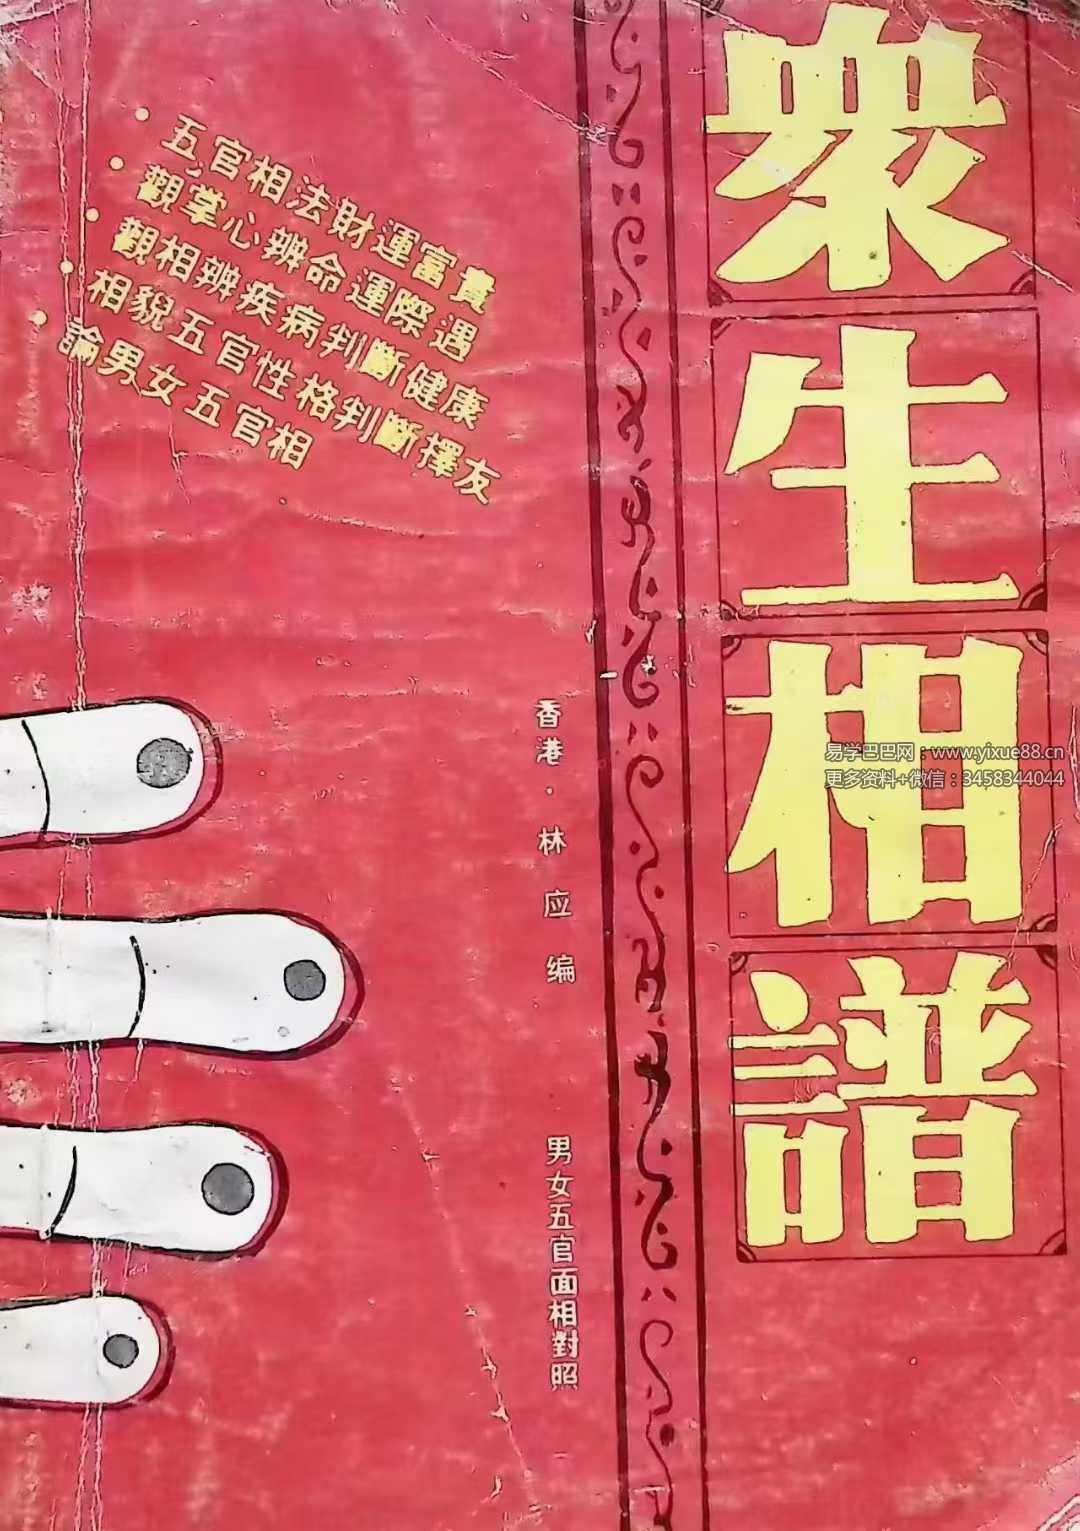 衆生相譜
五官相法財運富貴
觀掌心辨命運際遇
觀相辨疾病判斷健康
相貌五官性格判斷擇友
論男女五官相
香港·林应编
男女五官面相對照
易学巴巴网：www.yixue88.cn
更多资料+微信：3458344044